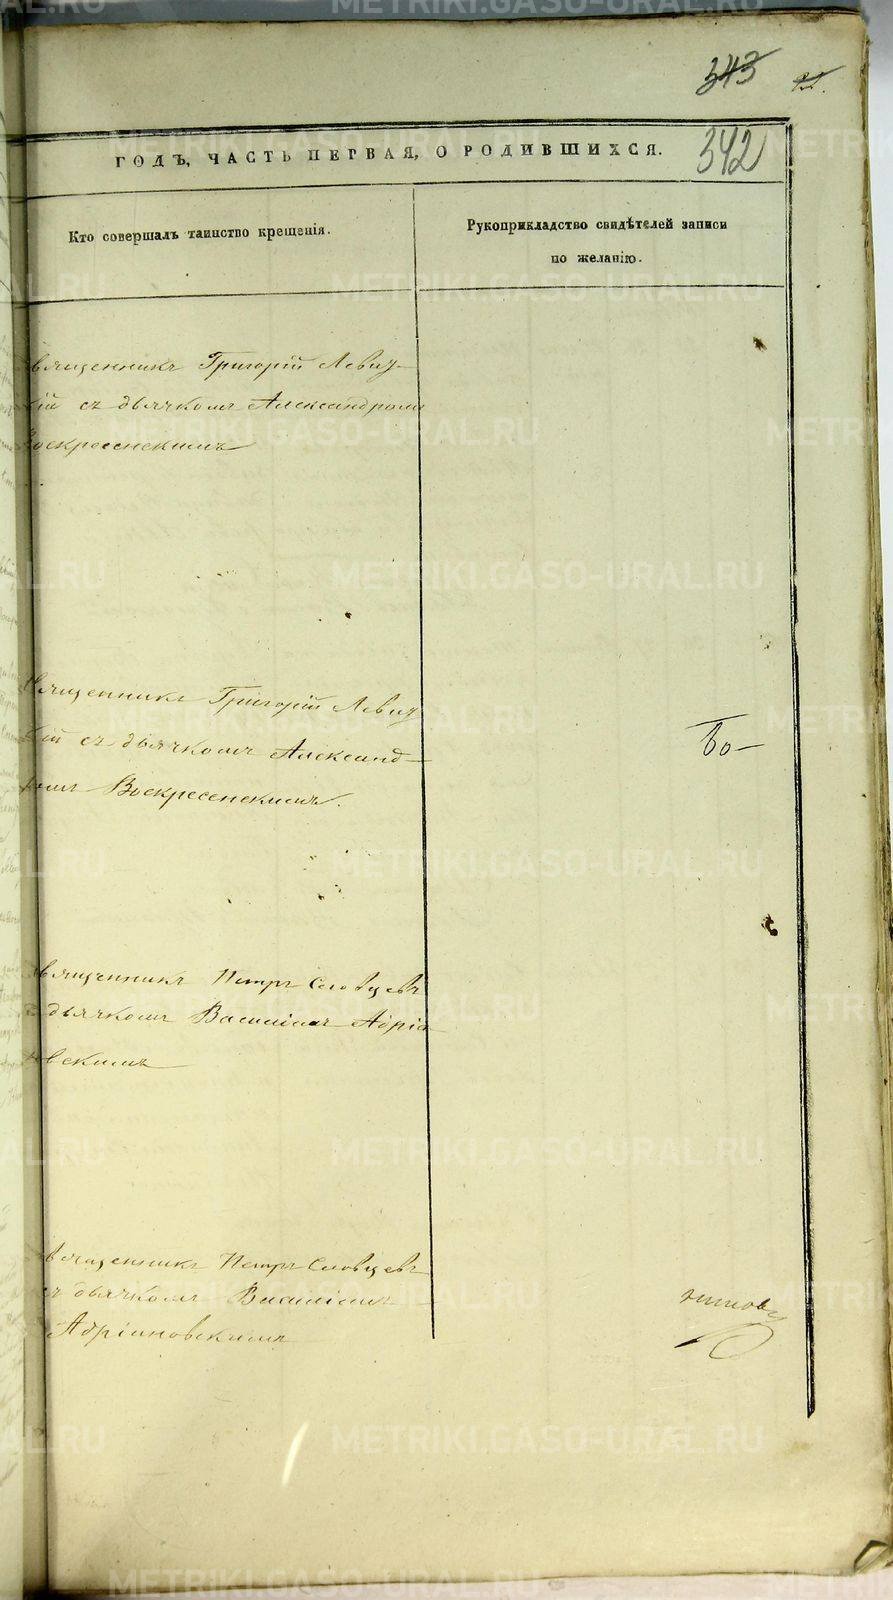 343
342
ГОДЪ, ЧАСТЬ ПЕРВАЯ, О РОДИВШИХСЯ.
Кто совершалъ таинство крещенія.
Рукоприкладство свидѣтелей записи
по желанію.
вященникъ Григорій Левиц-
кій съ дьячкомъ Александромъ
Воскресенскимъ
вященникъ Григорій Левиц
кій съ дьячкомъ Александ-
ромъ Воскресенскимъ.
Во-
вященникъ Петръ Словцевъ
съ дьячкомъ Василіемъ Адріа
новскимъ
вященникъ Петръ Словцевъ
съ дьячкомъ Василіемъ
Адріановскимъ
METRIKI.GASO-URAL.RU